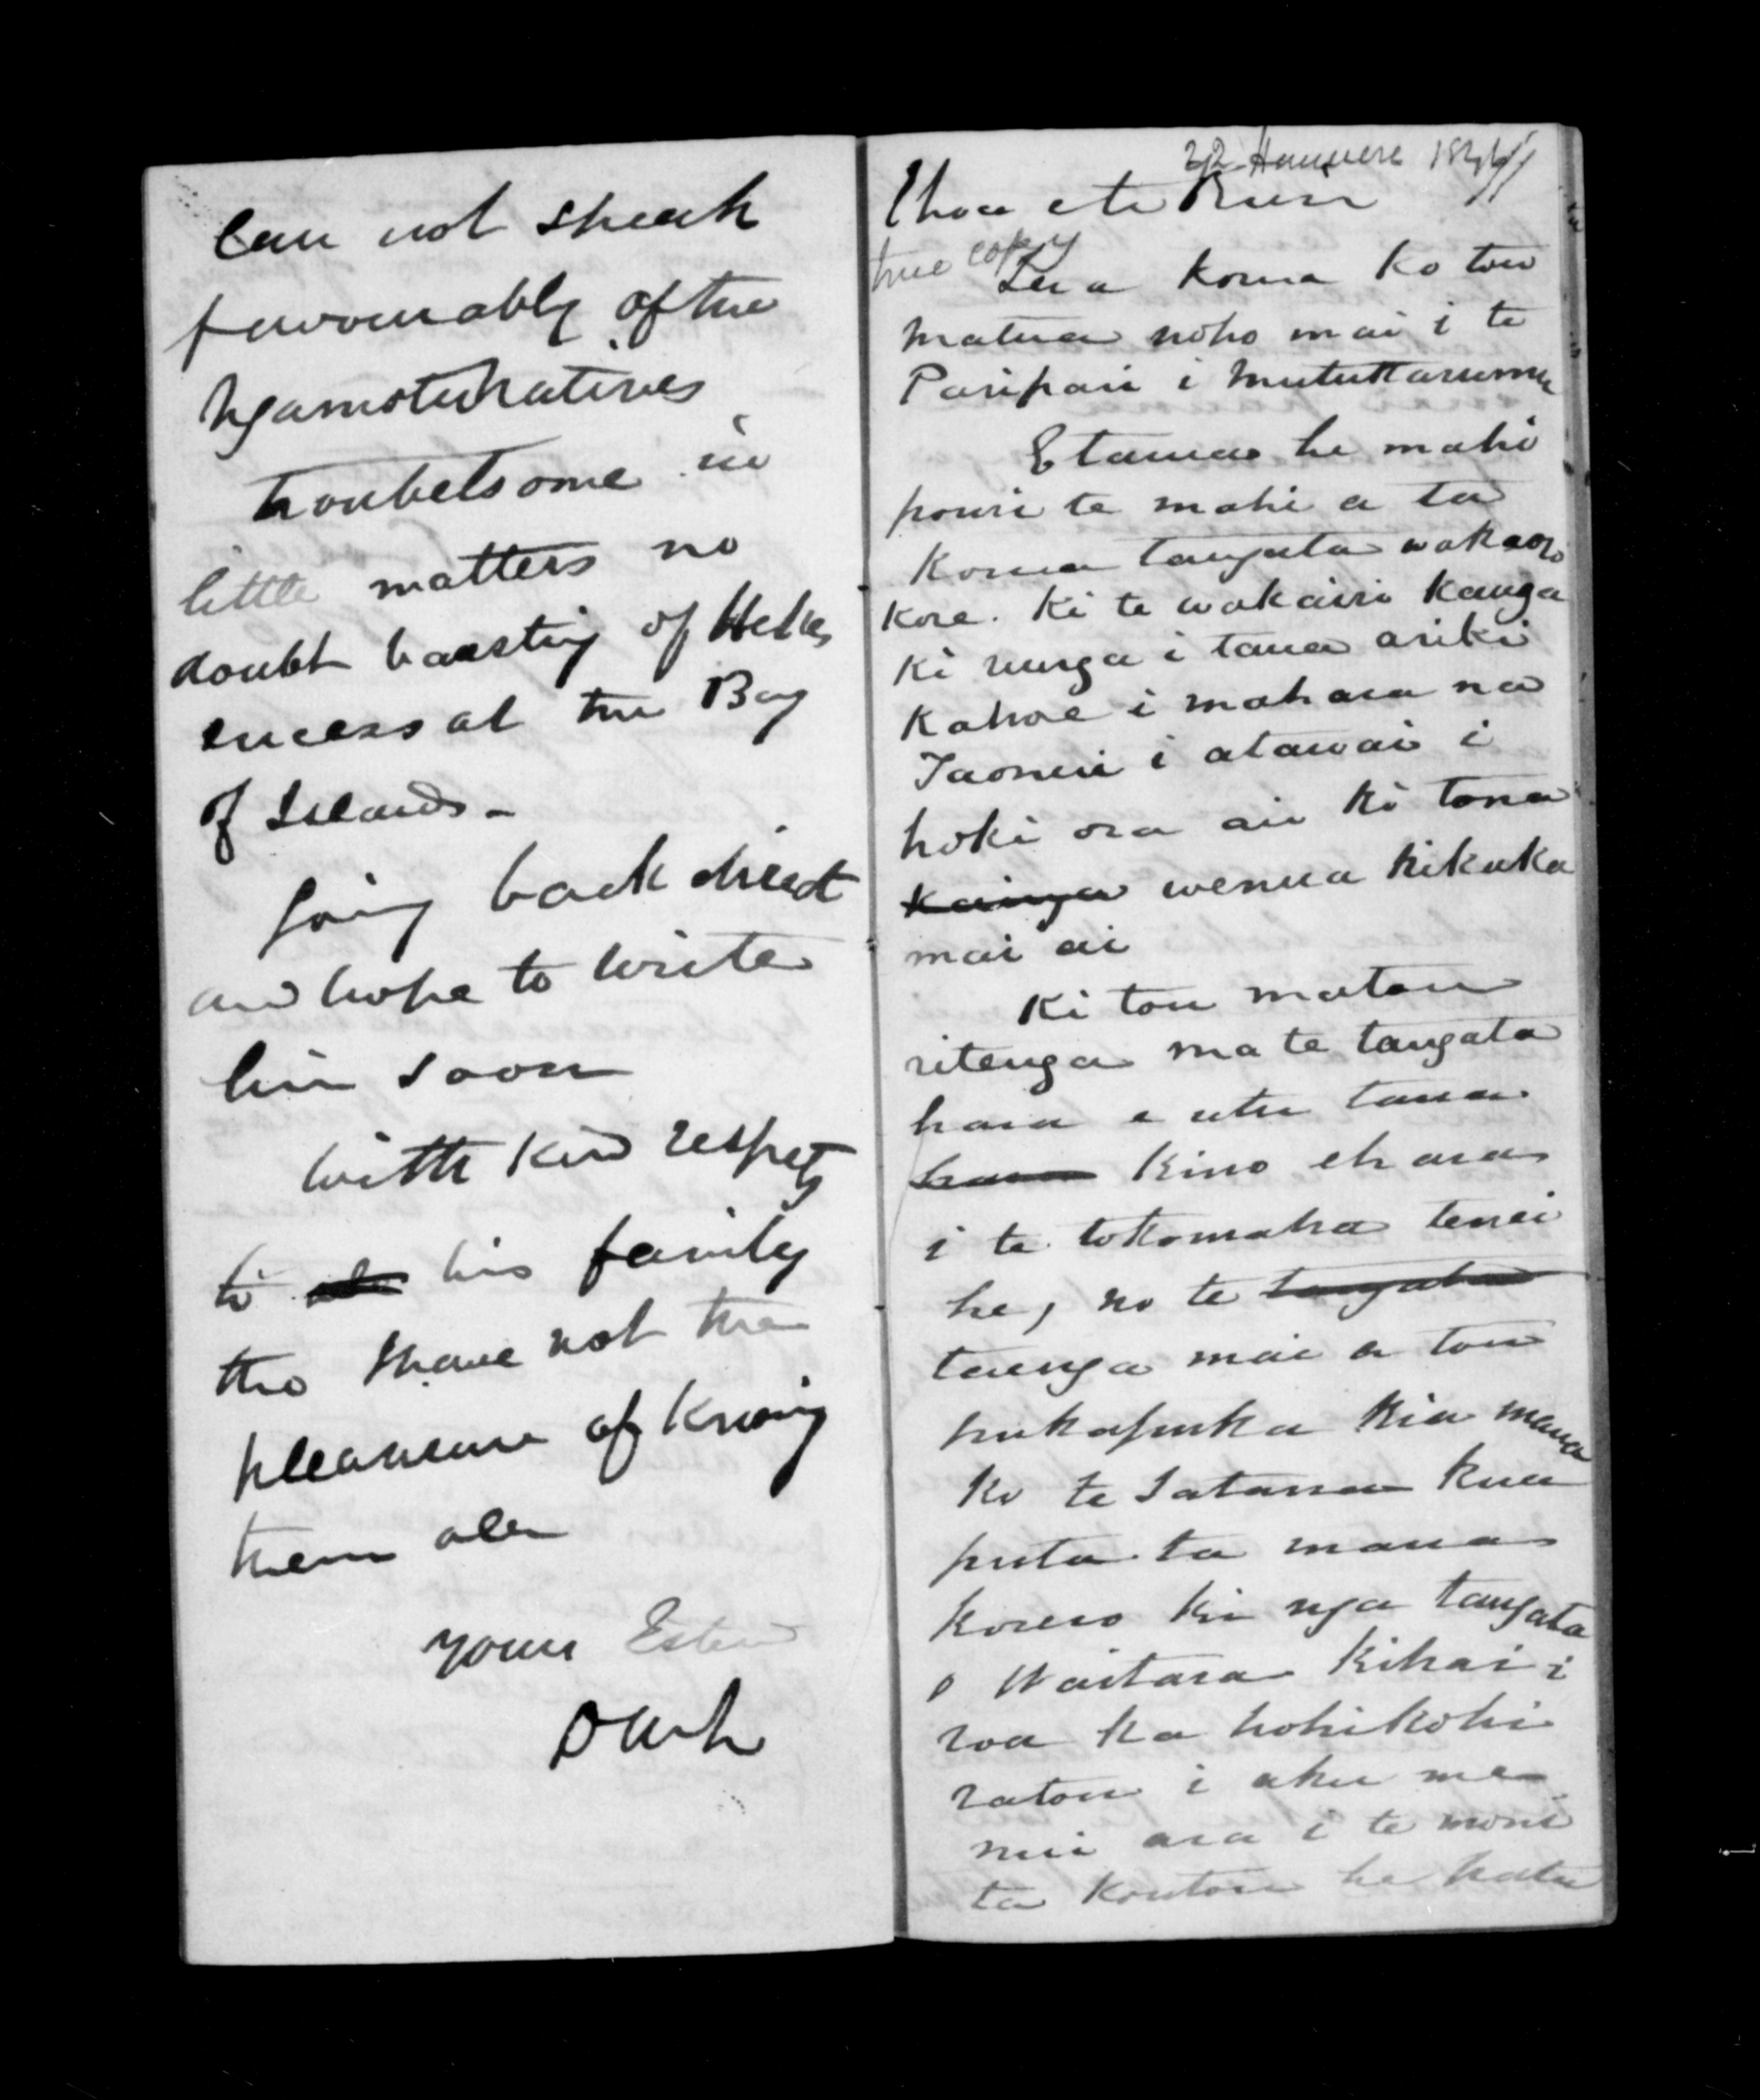 Can not speak
favourably of the
Ngamotu natives
troubelsome in
little matters no
doubt boasting of Hekes
sucess at the Bay
of Islands -
going back direct
and hope to write
him soon
with kind respets
to his family
tho I have not the
pleasure of knowing
them all
yours
22 Hanuere 1846
Ehoa e te
true copy
koma ko tou
matua noho mai i te
Paripari i
E tama he mahi
pouri te mahi a ta
koma tangata wakaaro
kore. Ki te wakairi kanga
ki runga i tana ariki
Kahore i mahara na
i atawai i
hoki ora ai ki tona
kainga wenua
mai ai
Ki tou matou
ritenga ma te tangata
hara e utu tana
hara kino ehara
i te tokomaha tenei
he, no te tangata
taenga mai a tou
pukapuka kia maua
ko te Satana kua
puta ta maua
korero ki nga tangata
o Waitara kihai i
roa ka kohikohi
ratou i aku me
nui ara i te moni
ta koutou he